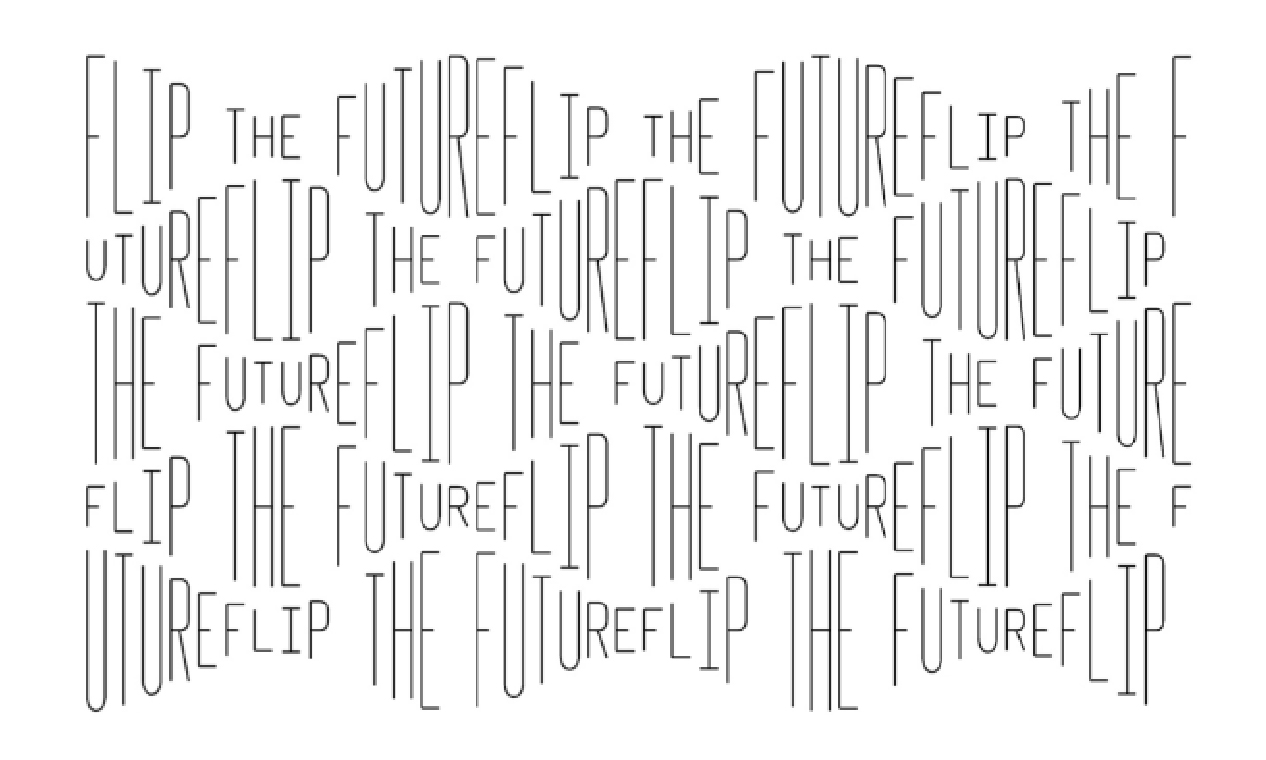 FLIP THE FUTUREFLIP THE FUTUREFLIP THE F
UTUREFLIP THE FUTUREFLIP THE FUTUREFLIP
THE FUTUREFLIP THE FUTUREFLIP THE FUTURE
FLIP THE FUTUREFLIP THE FUTUREFLIP THE F
UTUREFLIP THE FUTUREFLIP THE FUTUREFLIP